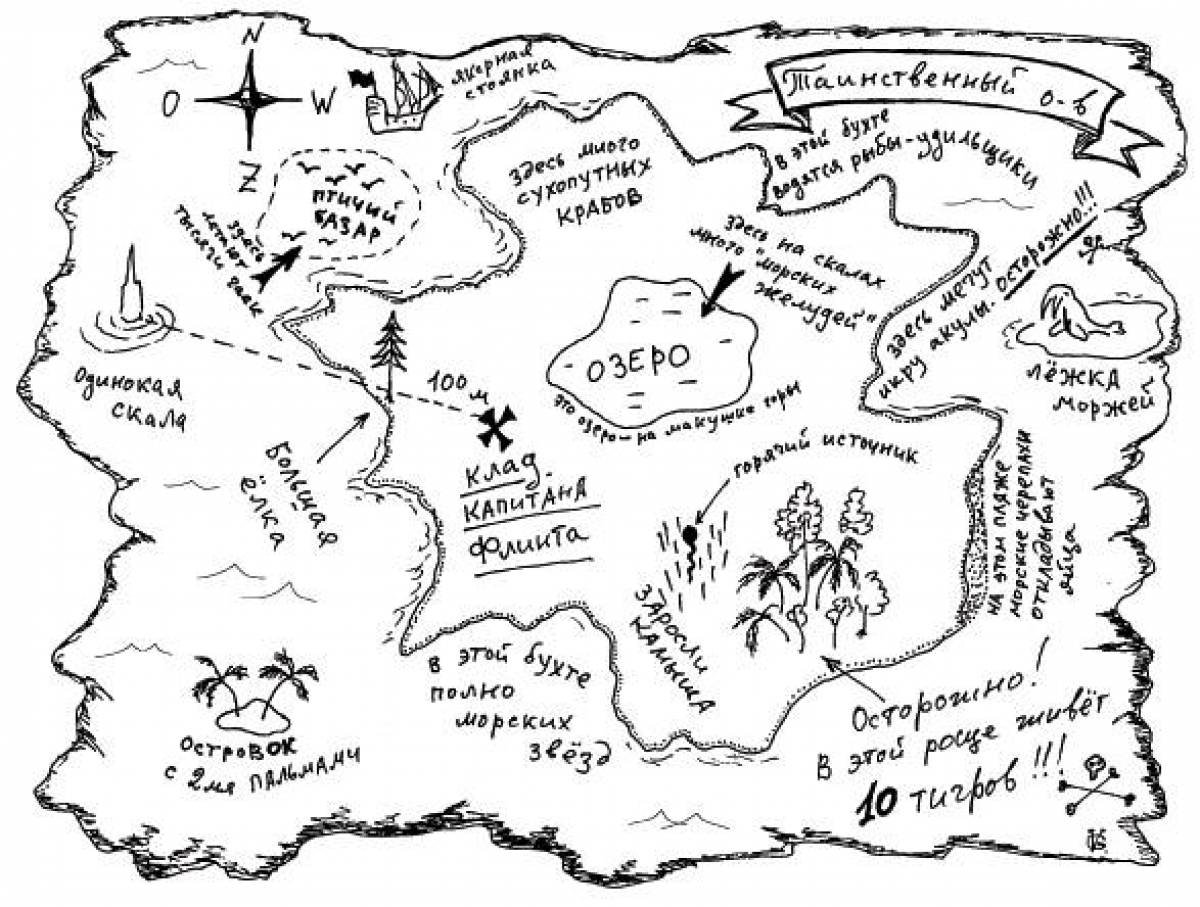 N
O
W
Z
якерная
стоянка
Таинственный
о-в
в этой бухте
водятся рыбы-удильщики
Здесь много
сухопутных
крабов
птичий
базар
здесь
летают
тысячи чаек
Здесь на скалах
много "морских
желудей"
Здесь мечут
икру акулы. осторожно!!!
лёжка
моржей
Одинокая
скала
ОЗЕРО
это озеро - на макушке горы
100 м
Большая
ёлка
Клад
капитана
Флинта
горячий источник
на этом пляже
морские черепахи
откладывают
яйца
заросли
камыша
островок
с 2мя пальмами
в этой бухте
полно
морских
звёзд
Осторожно!
В этой роще живёт
10 тигров!!!